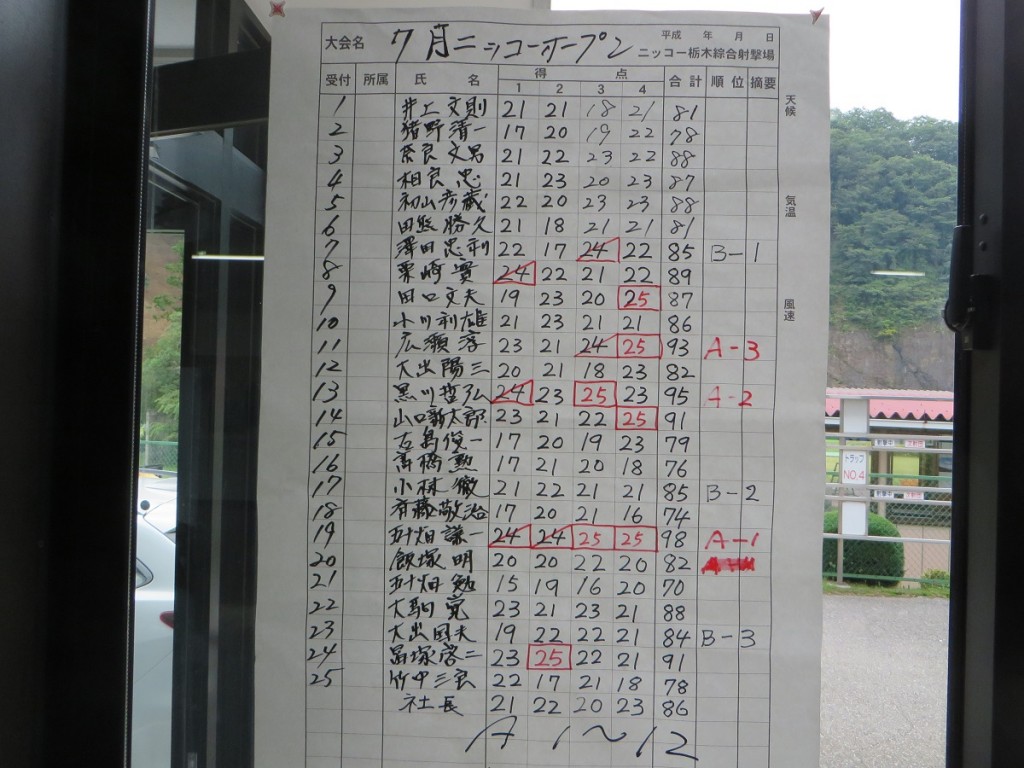 大会名 7月ニッコーオープン 平成 年 月 日
ニッコー栃木綜合射撃場
受付 所属 氏 名 得 点 合計 順位 摘要
1 2 3 4
1 井上文則 21 21 18 21 81
2 猪野清一 17 20 19 22 78
3 奈良文男 21 22 23 22 88
4 相良忠 21 23 20 23 87
5 初山彦蔵 22 20 23 23 88
6 田熊勝久 21 18 21 21 81
7 澤田忠利 22 17 24 22 85 B-1
8 栗崎實 24 22 21 22 89
9 田口文夫 19 23 20 25 87
10 小川利雄 21 23 21 21 86
11 広瀬淳 23 21 24 25 93 A-3
12 大出陽三 20 21 18 23 82
13 黒川哲弘 24 23 25 23 95 A-2
14 山口新太郎 23 21 22 25 91
15 古島俊一 17 20 19 23 79
16 高橋勲 17 21 20 18 76
17 小林徹 21 22 21 21 85 B-2
18 斉藤敬治 17 20 21 16 74
19 五十畑謙一 24 24 25 25 98 A-1
20 飯塚明 20 20 22 20 82
21 五十畑勉 15 19 16 20 70
22 大駒寛 23 21 23 21 88
23 大出国夫 19 22 22 21 84 B-3
24 塚啓二 23 25 22 21 91
25 竹中三良 22 17 21 18 78
社長 21 22 20 23 86
A 1〜12
天候
気温
風速
トラップ
NO.4